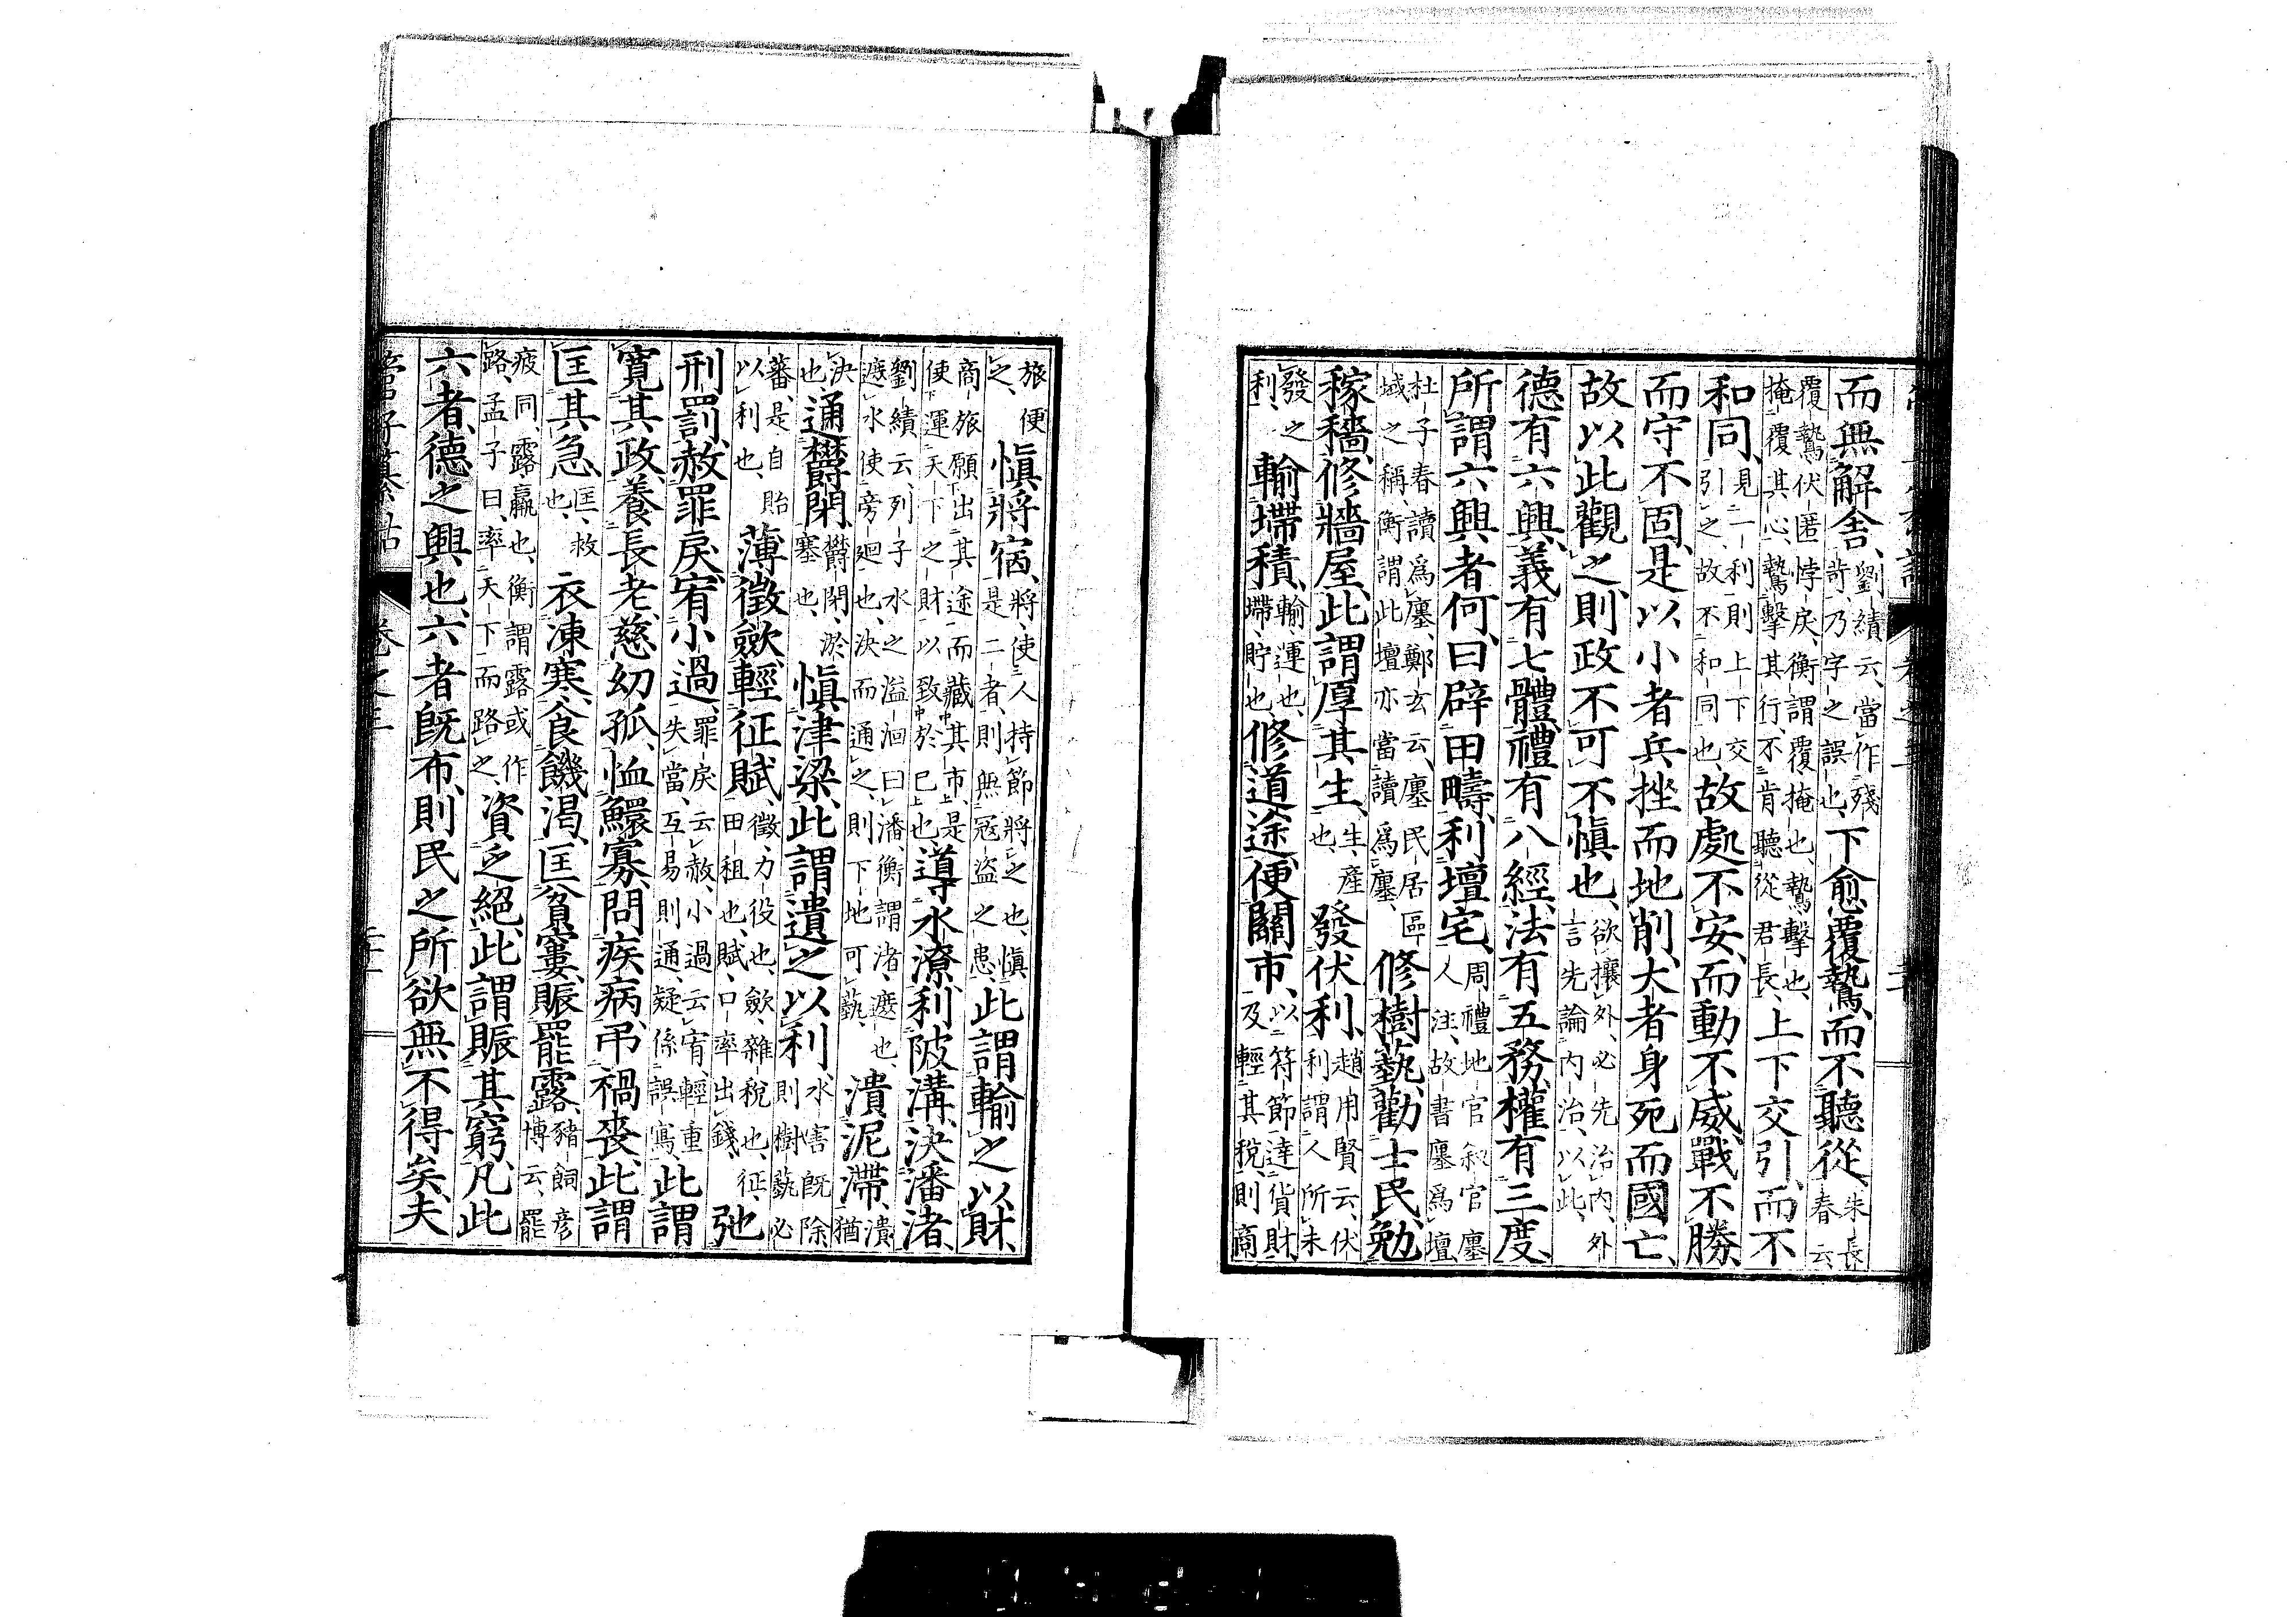 而無解舍、劉績云、當作殘苛、乃字之誤也、下愈覆鷙、而不聽從、朱長春云
覆鷙伏匿悖戾、衡謂覆掩也、鷙擊也、掩覆其心、鷙擊其行、不肯聽從君長、上下交引、而不
和同、見一利則上下交引之、故不和同也、故處不安、而動不威、戰不勝
而守不固、是以小者兵挫而地削、大者身死而國亡、
故以此觀之、則政不可不愼也、欲攘外、必先治內、外言先論內治、以此、
德有六興、義有七體、禮有八經、法有五務、權有三度、
所謂六興者何、曰辟田疇、利壇宅、周禮地官叙官廛人注、故書廛爲壇
杜子春讀爲廛、鄭玄云、廛民居區域之稱、衡謂此壇亦當讀爲廛、修樹藝、勸士民、勉
稼穡、修牆屋、此謂厚其生、生、產也、發伏利、趙用賢云、伏利謂人所未
發之利、輸墆積、輸、運也、墆、貯也、修道途、便關市、以符節達貨財、及輕其稅、則商
旅便之、愼將宿、將、使人持節將之也、愼是二者、則無冦盜之患、此謂輸之以財、
商旅願出其途、而藏其市、是使運天下之財以致於已也、導水潦、利陂溝、決潘渚、
劉績云、列子水之溢洄曰潘、衡謂渚、遮也、遮水使旁廻也、決而通之、則下地可藝、潰泥滯、潰猶
決也、通鬱閉、鬱閉、淤塞也、愼津梁、此謂遺之以利、水害既除則樹藝必
蕃、是自貽以利也、薄徵歛、輕征賦、徵、力役也、歛、雜稅也、征、田租也、賦、口率出錢、弛
刑罰、赦罪戾、宥小過、罪戾云赦、小過云宥、輕重失當、互易則通、疑係誤寫、此謂
寬其政、養長老、慈幼孤、恤鰥寡、問疾病、吊禍喪、此謂
匡其急、匡、救也、衣凍寒、食饑渴、匡貧窶、賑罷露、豬飼彥博云、罷
疲同、露羸也、衡謂露或作路、孟子曰、率天下而路之、資乏絕、此謂賑其窮、凡此
六者、德之興也、六者既布、則民之所欲無不得矣、夫